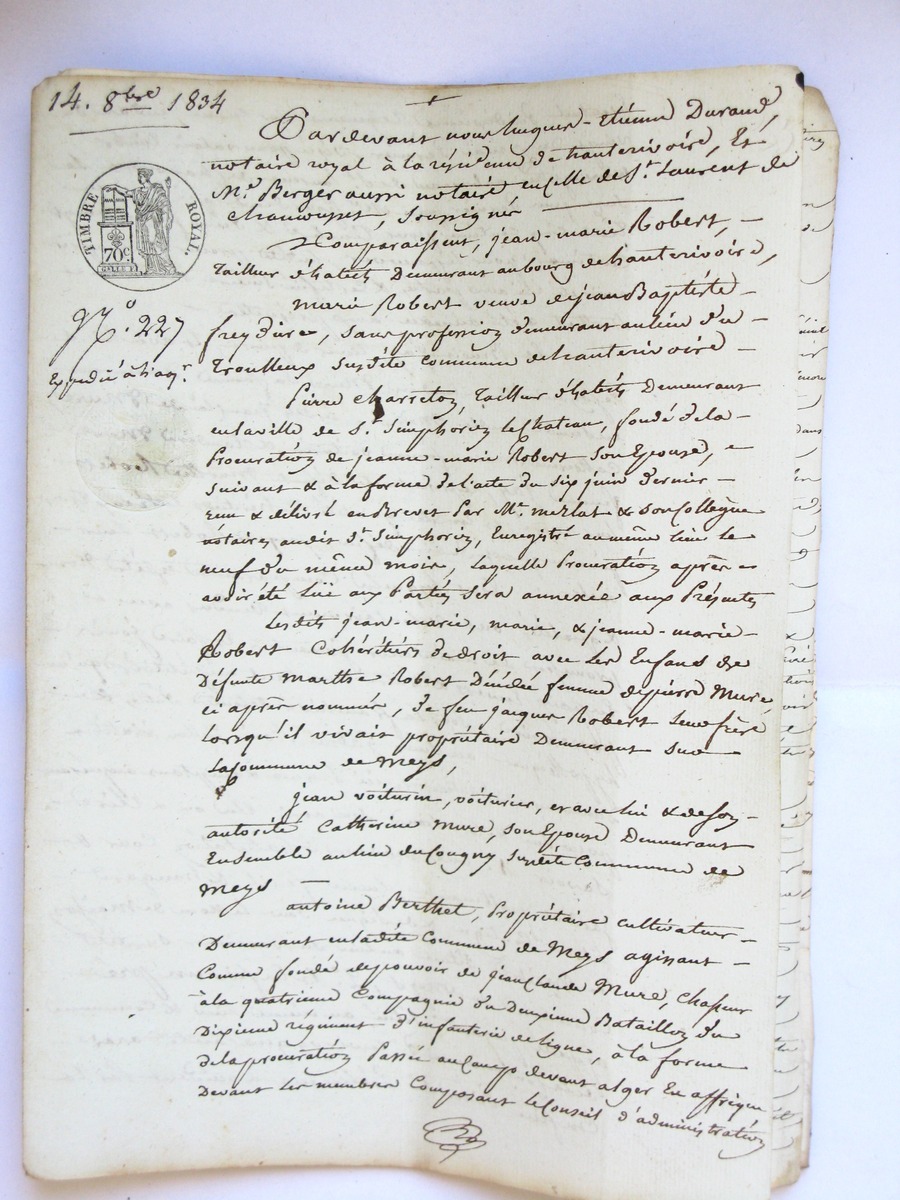 14. 8bre 1834
Pardevant nous hugues-Etiénne Durand,
notaire royal à la résidence de hauterivoire, Et
Me. Berger aussi notaire en celle de St. Laurent de
Chamousset, Soussignés
TIMBRE ROYAL.
70c.
Comparaissent, jean-marie Robert,
Tailleur d'habits Demeurant au bourg de hauterivoire,
marie Robert veuve de jean Baptiste
No. 227
freydiere, sans profession demeurant au lieu du
Trouilleux Susdite commune de hauterivoire
Expédié à l'acqr.
Pierre Charreton, Tailleur d'habits Demeurant
en la ville de St. Simphorien le Chateau, fondé de la
Procuration de jeanne-marie Robert son Epouse,
suivant & à la forme de l'acte du six juin dernier
reçu & délivré en Brevet par Me. merlat & son Collègue
notaires audit St. Simphorien, Enregistré au même lieu le
neuf du même mois, laquelle Procuration après
avoir été Lüe aux Parties sera annexée aux Présentes
Lesdits jean-marie, marie, & jeanne-marie
Robert Cohéritiers de droit avec les Enfans de
Défunte marthe Robert Décédée femme de pierre Mure,
ci après nommés, de feu jacques Robert leur frère
lorsqu'il vivait propriétaire Demeurant sur
la Commune de Meys,
jean voiturin, voiturier, et avec lui & de son
autorité Catherine Mure, son Epouse Demeurant
Ensemble au lieu du Cougny Susdite Commune de
Meys
antoine Berthet, Propriétaire cultivateur
Demeurant en ladite Commune de Meys agissant
Comme fondé de pouvoir de jean Claude Mure, Chasseur
à la quatrieme Compagnie du Deuxieme Bataillon du
Dixieme régiment d'infanterie de ligne, à la forme
de la procuration Passée au Camp devant alger En affrique
Devant les membres Composant le Conseil d'administration